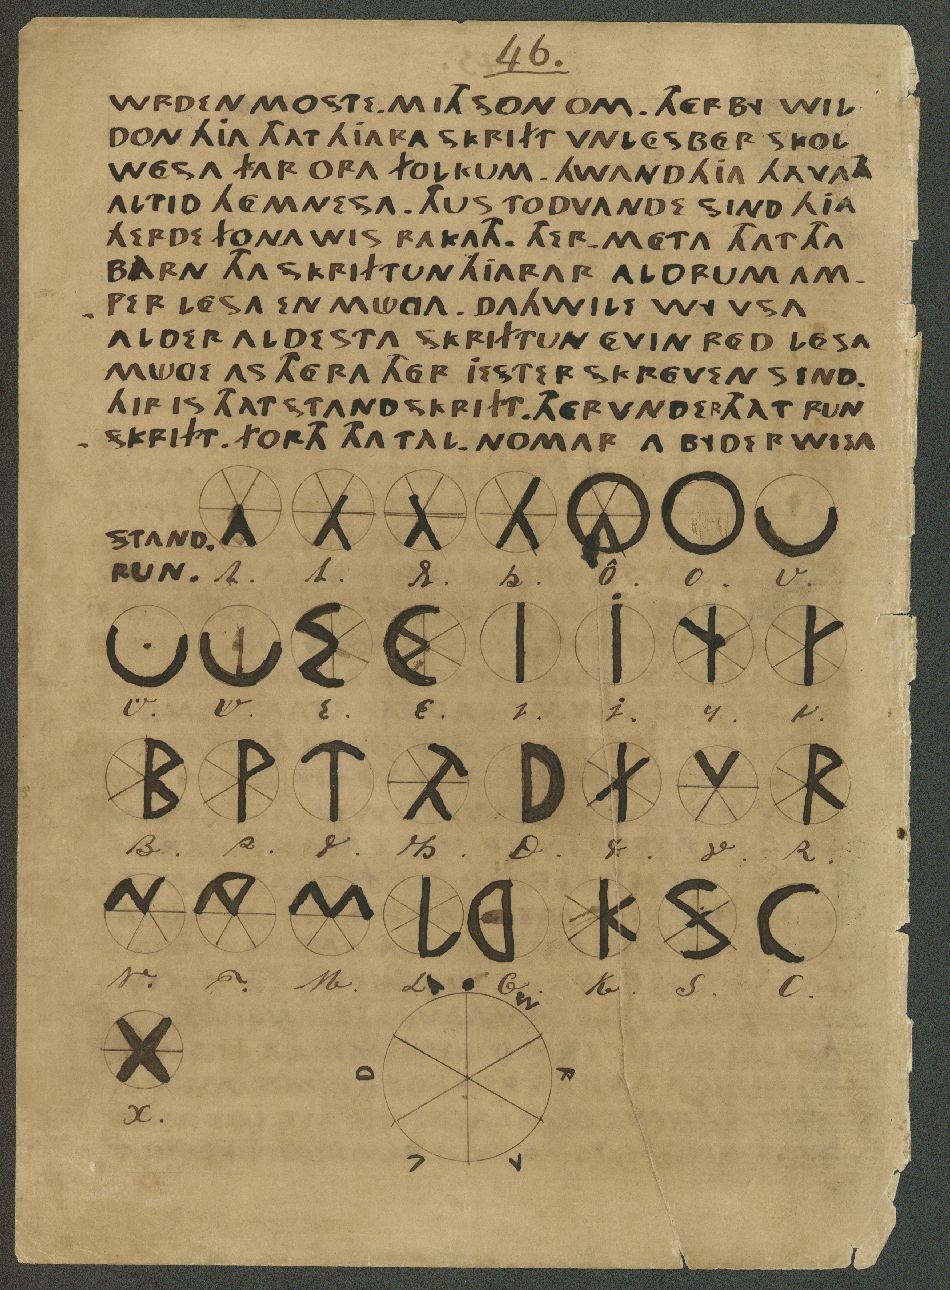 46.
WRDEN MOSTE. MITH SON OM. THERBY WIL
DON HIA THAT HIARA SKRIFT VNLESBER SKOL
WESA FAR ORA FOLKUM. HWAND HIA HAVATH
ALTID HEMNESA. THUS TO DVANDE SIND HIA
HERDE FONA WIS RAKATH. THER-META THAT THA
BARN THA SKRIFTUN HIARAR ALDRUM AM-
PER LESA EN MÜGA. DAHWILE WY VSA
ALDER ALDESTA SKRIFTUN EVIN RED LESA
MÜGE AS THERA THER JESTER SKREVEN SIND.
HIR IS THAT STANDSKRIFT. THER VNDER THAT RUN
SKRIFT. FORTH THA TAL-NOMAR A BYDER WISA
STAND.
RUN. Ô. O. U.
E. E. I. J. Y.
B. P. T. TH. D. F. V. R.
N. M. L. G. K. S. C.
X.